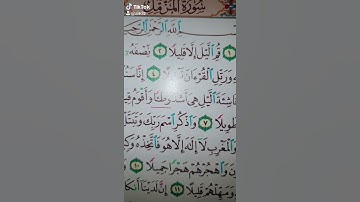 TikTok
سُورَةُ الْمُزَّمِّل
اللَّهِ الرَّحْمَٰنِ الرَّحِيـ
١ قُمِ الَّيْلَ إِلَّا قَلِيلًا ٢ نِّصْفَهُ
وَرَتِّلِ الْقُرْءَانَ تَرْتِيلًا ٤ إِنَّا سَنُـ
نَاشِئَةَ الَّيْلِ هِيَ أَشَدُّ وَطْـًٔا وَأَقْوَمُ قِيـ
طَوِيلًا ٧ وَاذْكُرِ اسْمَ رَبِّكَ وَتَبَتَّـ
وَالْمَغْرِبِ لَا إِلَٰهَ إِلَّا هُوَ فَاتَّخِذْهُ وَكِـ
نَ وَاهْجُرْهُمْ هَجْرًا جَمِيلًا ١٠
وَمَهِّلْهُمْ قَلِيلًا ١١ إِنَّ لَدَيْنَا أَنكَا